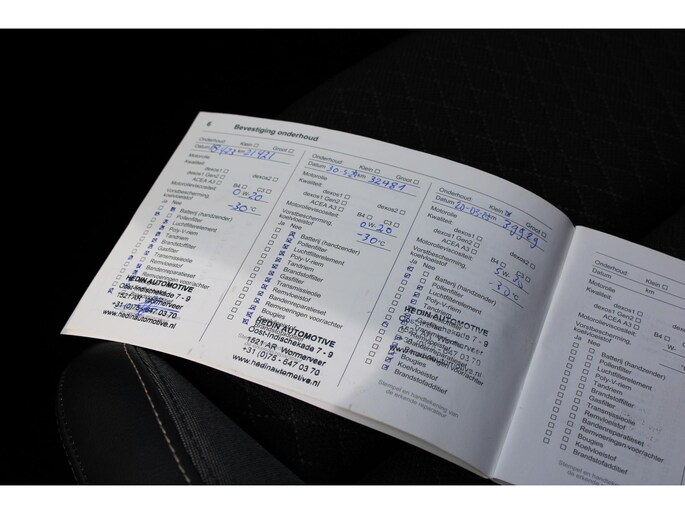 6 Bevestiging onderhoud
Onderhoud: Klein Groot
Datum km 21421
Motorolie
Kwaliteit:
dexos1
dexos1 Gen2
ACEA A3
dexos2
B4 C3
Motorolieviscositeit 0 W- 20
Vorstbescherming, koelvloeistof -30 °C
Ja Nee
Batterij (handzender)
Pollenfilter
Luchtfilterelement
Poly-V-riem
Tandriem
Brandstoffilter
Gasfilter
Transmissieolie
Remvloeistof
Bandenreparatieset
Remvoeringen voor/achter
HEDIN AUTOMOTIVE
Oost-Indischekade 7 - 9
1521 AR
+31 (0)75 - 647 03 70
www.hedinautomotive.nl
Onderhoud: Klein Groot
Datum 30-5-24 km 32481
Motorolie
Kwaliteit:
dexos1
dexos1 Gen2
ACEA A3
dexos2
B4 C3
Motorolieviscositeit 0 W- 20
Vorstbescherming, koelvloeistof -30 °C
Ja Nee
Batterij (handzender)
Pollenfilter
Luchtfilterelement
Poly-V-riem
Tandriem
Brandstoffilter
Gasfilter
Transmissieolie
Remvloeistof
Bandenreparatieset
Remvoeringen voor/achter
Bougies
HEDIN AUTOMOTIVE
Oost-Indischekade 7 - 9
1521 AR Wormerveer
+31 (0)75 - 647 03 70
www.hedinautomotive.nl
Onderhoud: Klein Groot
Datum km 39989
Motorolie
Kwaliteit:
dexos1
dexos1 Gen2
ACEA A3
dexos2
B4 C3
Motorolieviscositeit 5 W-
Vorstbescherming, koelvloeistof -30 °C
Ja Nee
Batterij (handzender)
Pollenfilter
Luchtfilterelement
Poly-V-riem
HEDIN AUTOMOTIVE
Oost-Indischekade 7 - 9
1521 AR Wormerveer
647 03 70
Bougies
Koelvloeistof
Brandstofadditief
Stempel en handtekening van de erkende reparateur
Onderhoud: Klein
Datum km
Motorolie
Kwaliteit:
dexos1
dexos1 Gen2
ACEA A3
B4
Motorolieviscositeit W-
Vorstbescherming, koelvloeistof
Ja Nee
Batterij (handzender)
Pollenfilter
Luchtfilterelement
Poly-V-riem
Tandriem
Brandstoffilter
Gasfilter
Transmissieolie
Remvloeistof
Bandenreparatieset
Remvoeringen voor/achter
Bougies
Koelvloeistof
Brandstofadditief